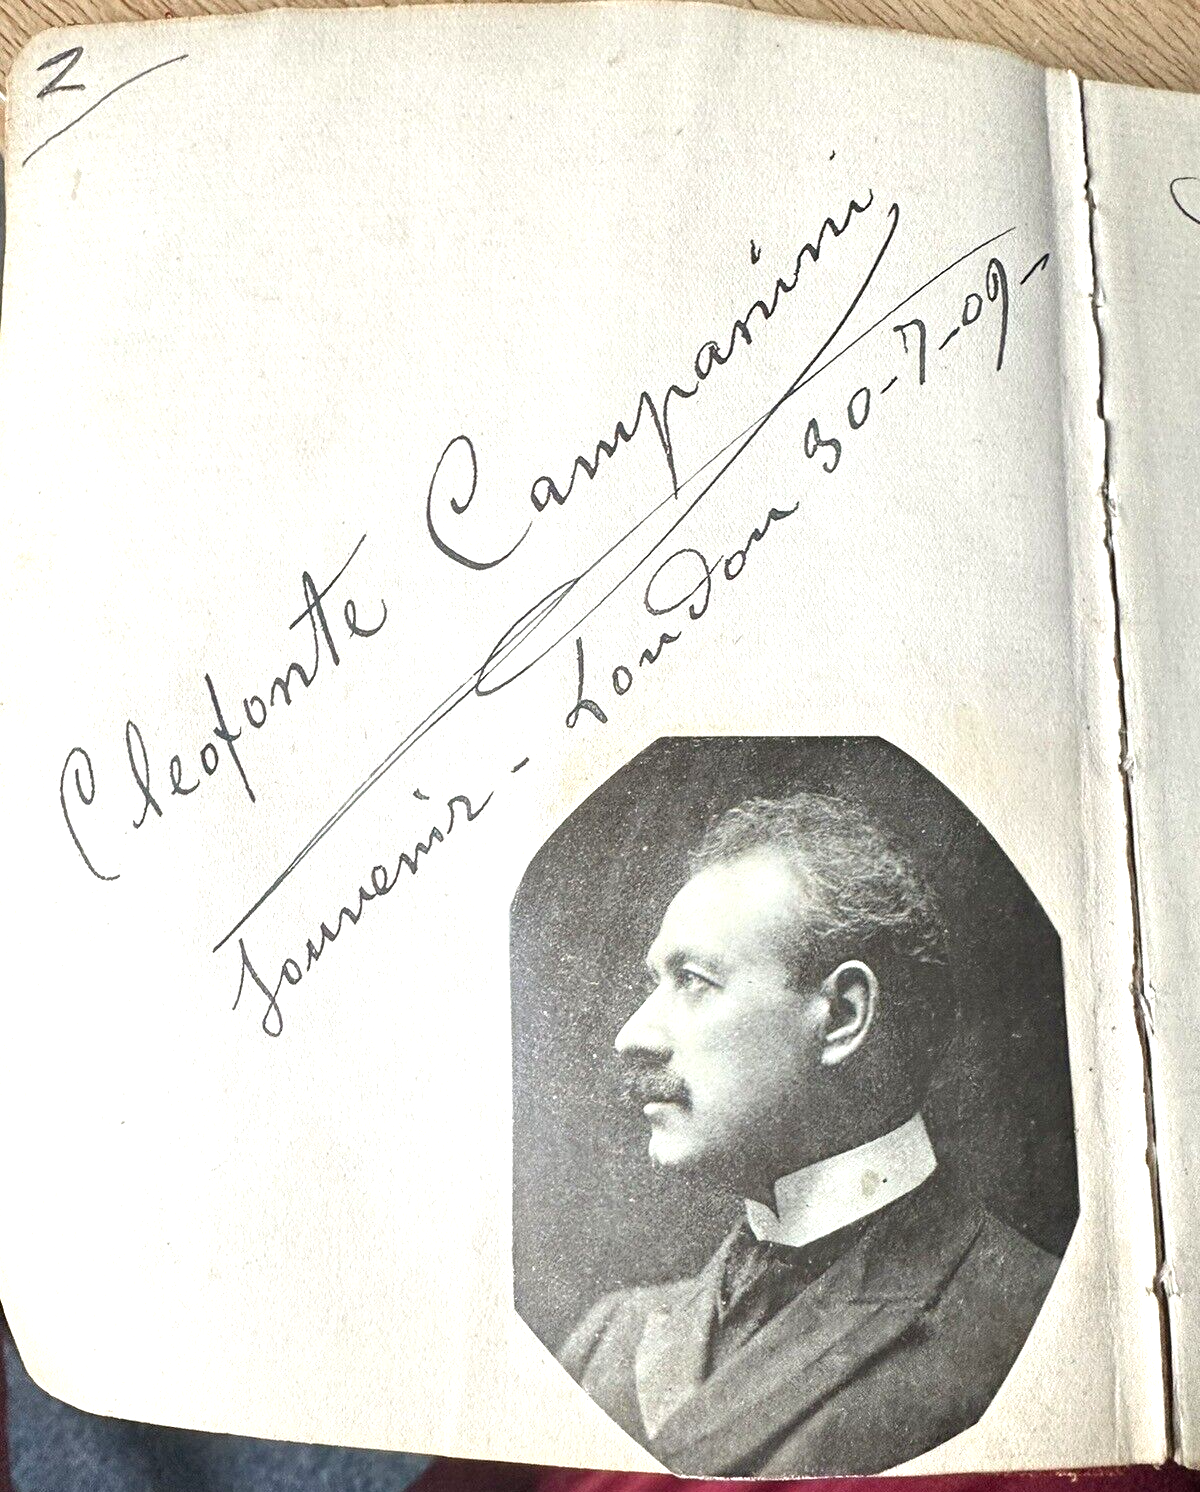 2
Cleofonte Campanini
Souvenir - London 30-7-09-